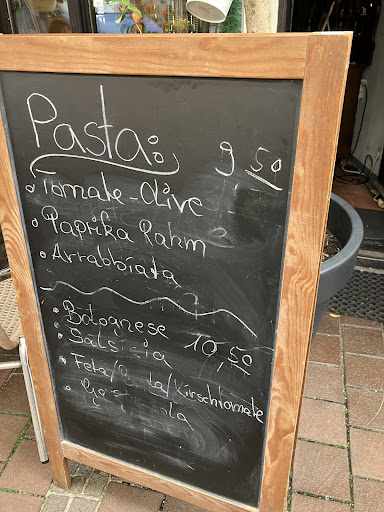 Pasta: 9 50
Tomate-Olive
Paprika Rahm
Arrabbiata
Bolognese
Salsiccia 10,50
Feta/ /Kirschtomate